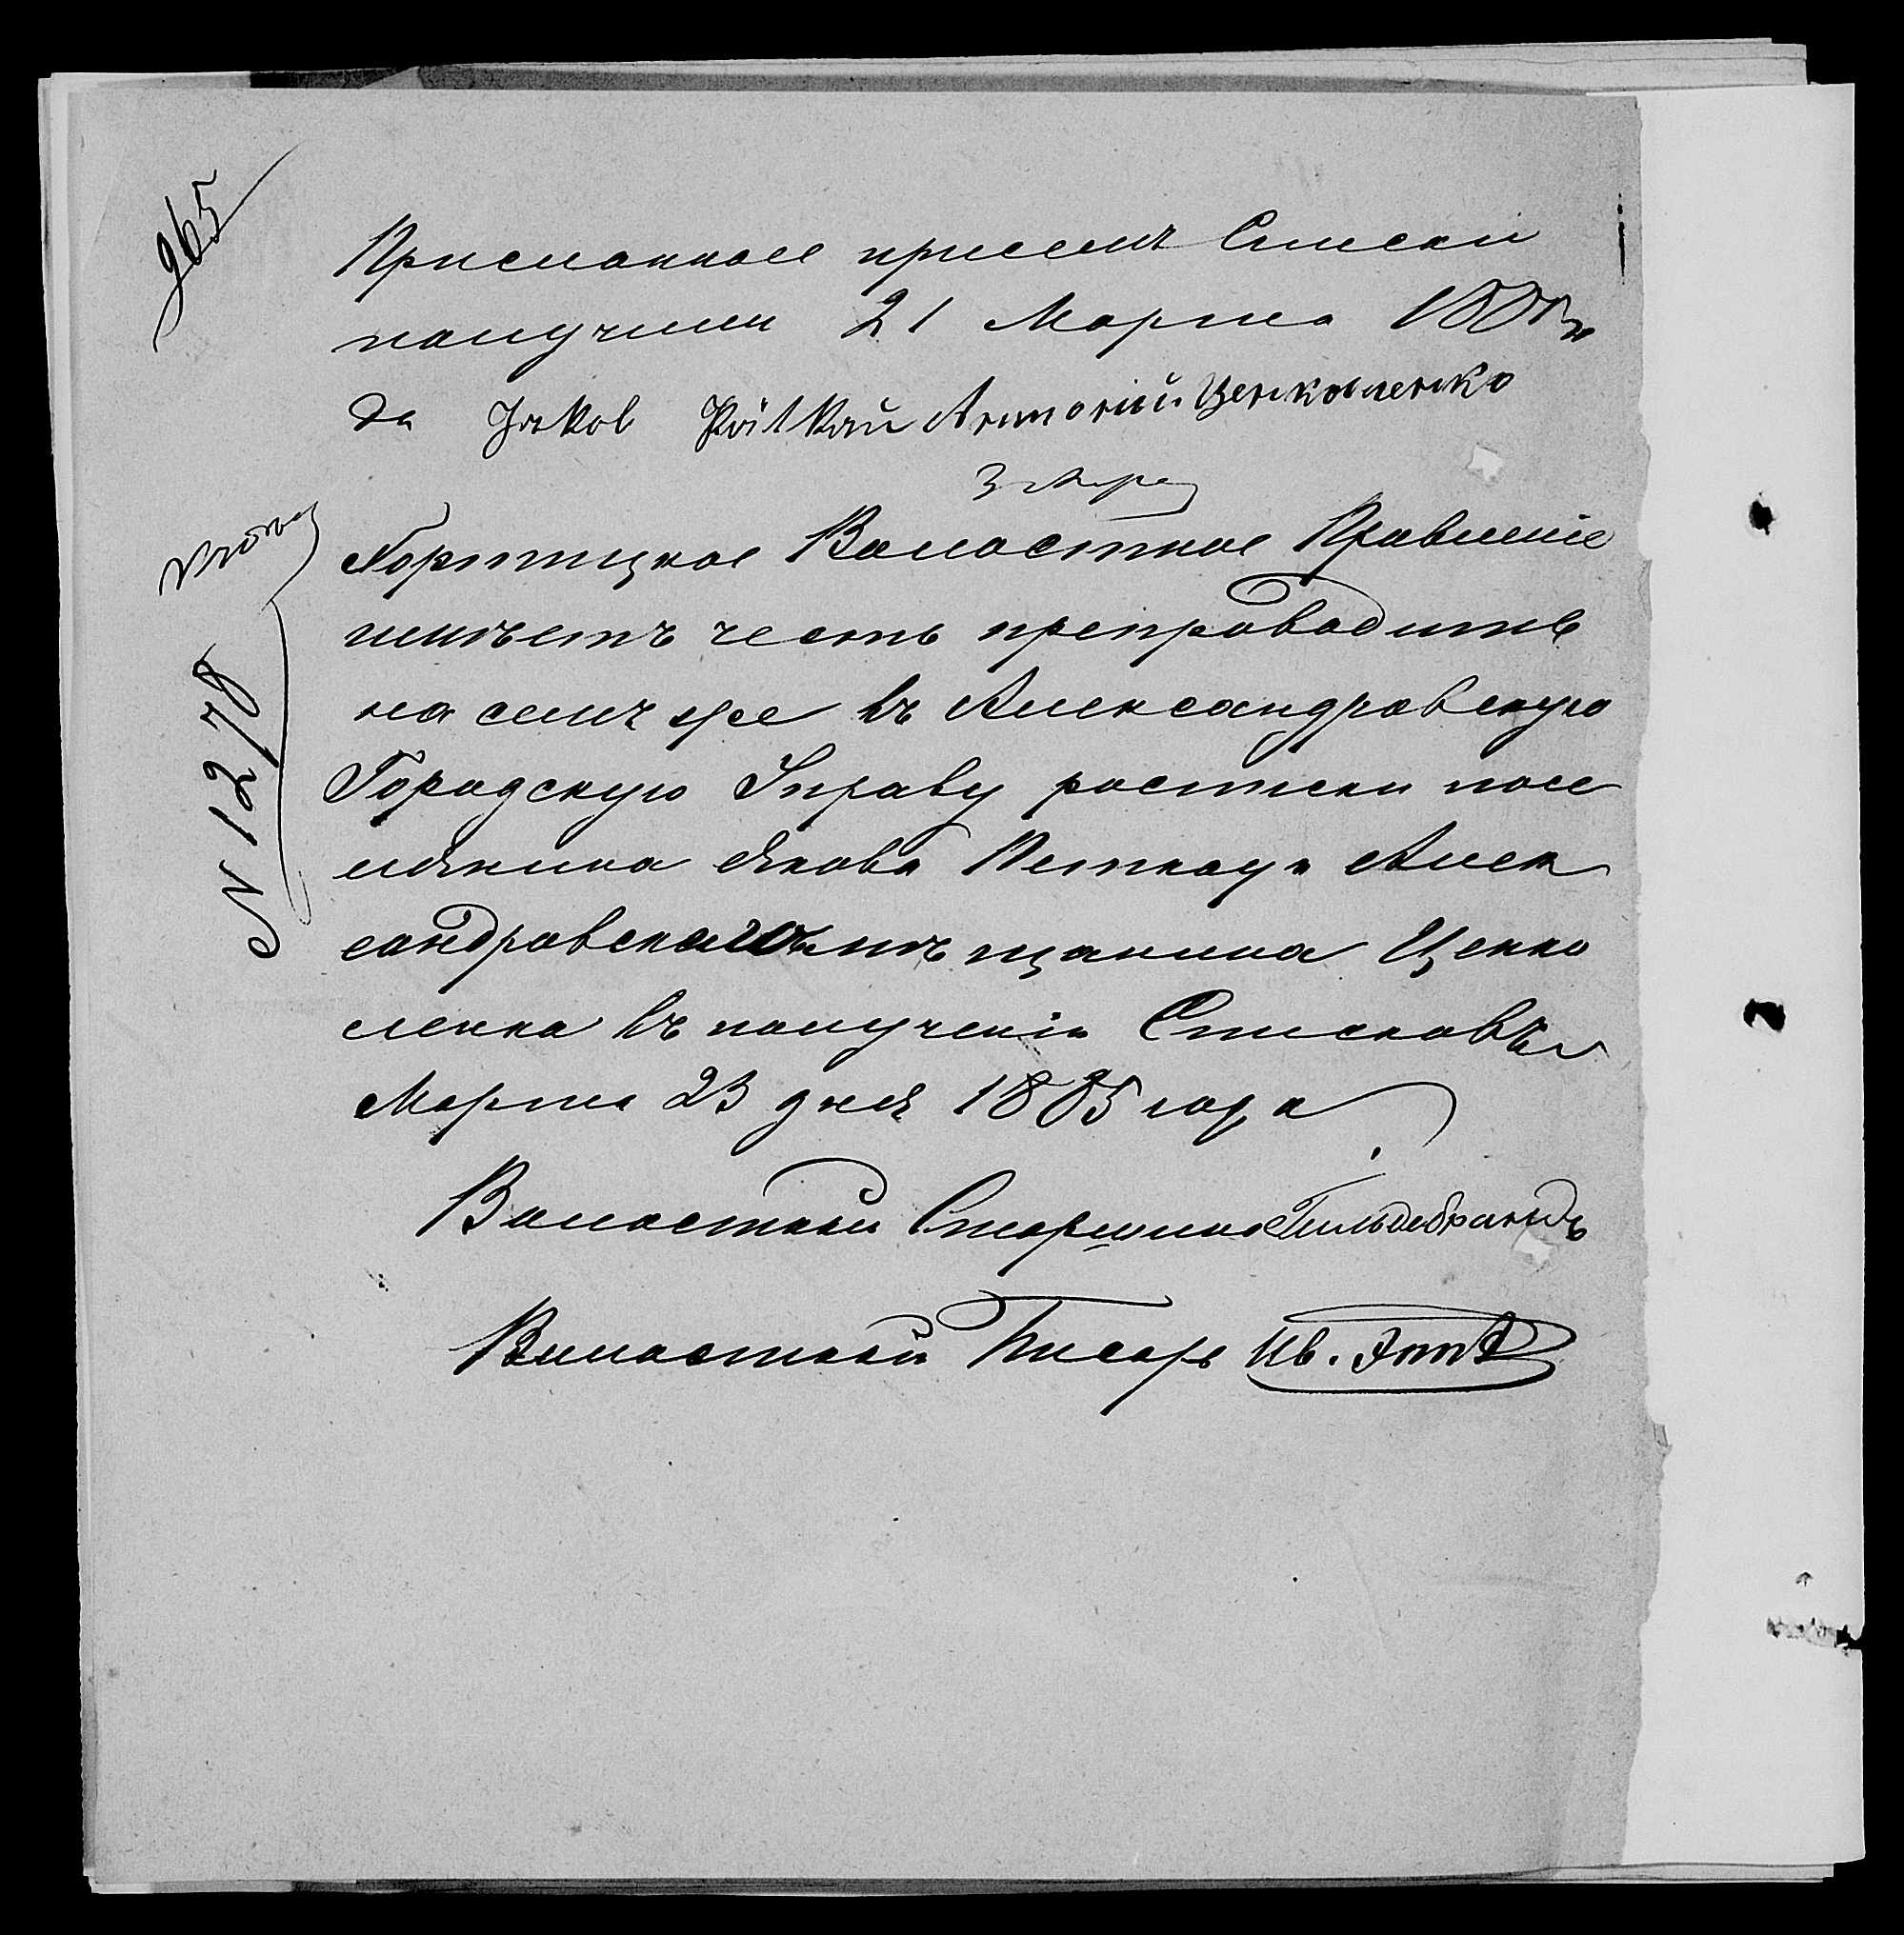 265
Присланное присемъ Списки
получили 21 Марта 1885 го
да Jakob Pätkau Антоній Ценковленко
Хортицкое Волостное Правленіе
имѣетъ честь препроводить
на семъ же въ Александровскую
Городскую Управу росписки посе
лянина Якова Петкау и Алек
сандровскаго мѣщанина Ценко
ленка въ полученіи Списковъ
Марта 23 дня 1885 года
N 1278
Волостной Старшина Гильдебрандъ
Волостной Писарь Ив. Эппъ